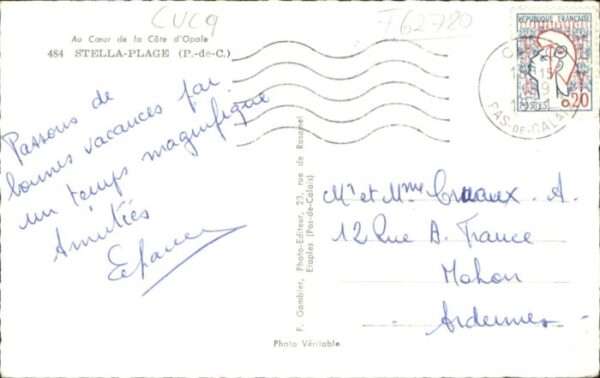 CUCQ
F62780
Au Cœur de la Côte d'Opale
484 STELLA-PLAGE (P.-de-C.)
RÉPUBLIQUE FRANÇAISE
0,20
POSTES
PAS-DE-CALAIS
Passons de
bonnes vacances par
un temps magnifique
Amitiés
F. Gambier, Photo-Editeur, 23, rue de Rosamel
Etaples (Pas-de-Calais)
Mr et Mme A.
12 Rue A. France
Mohon
Ardennes
Photo Véritable